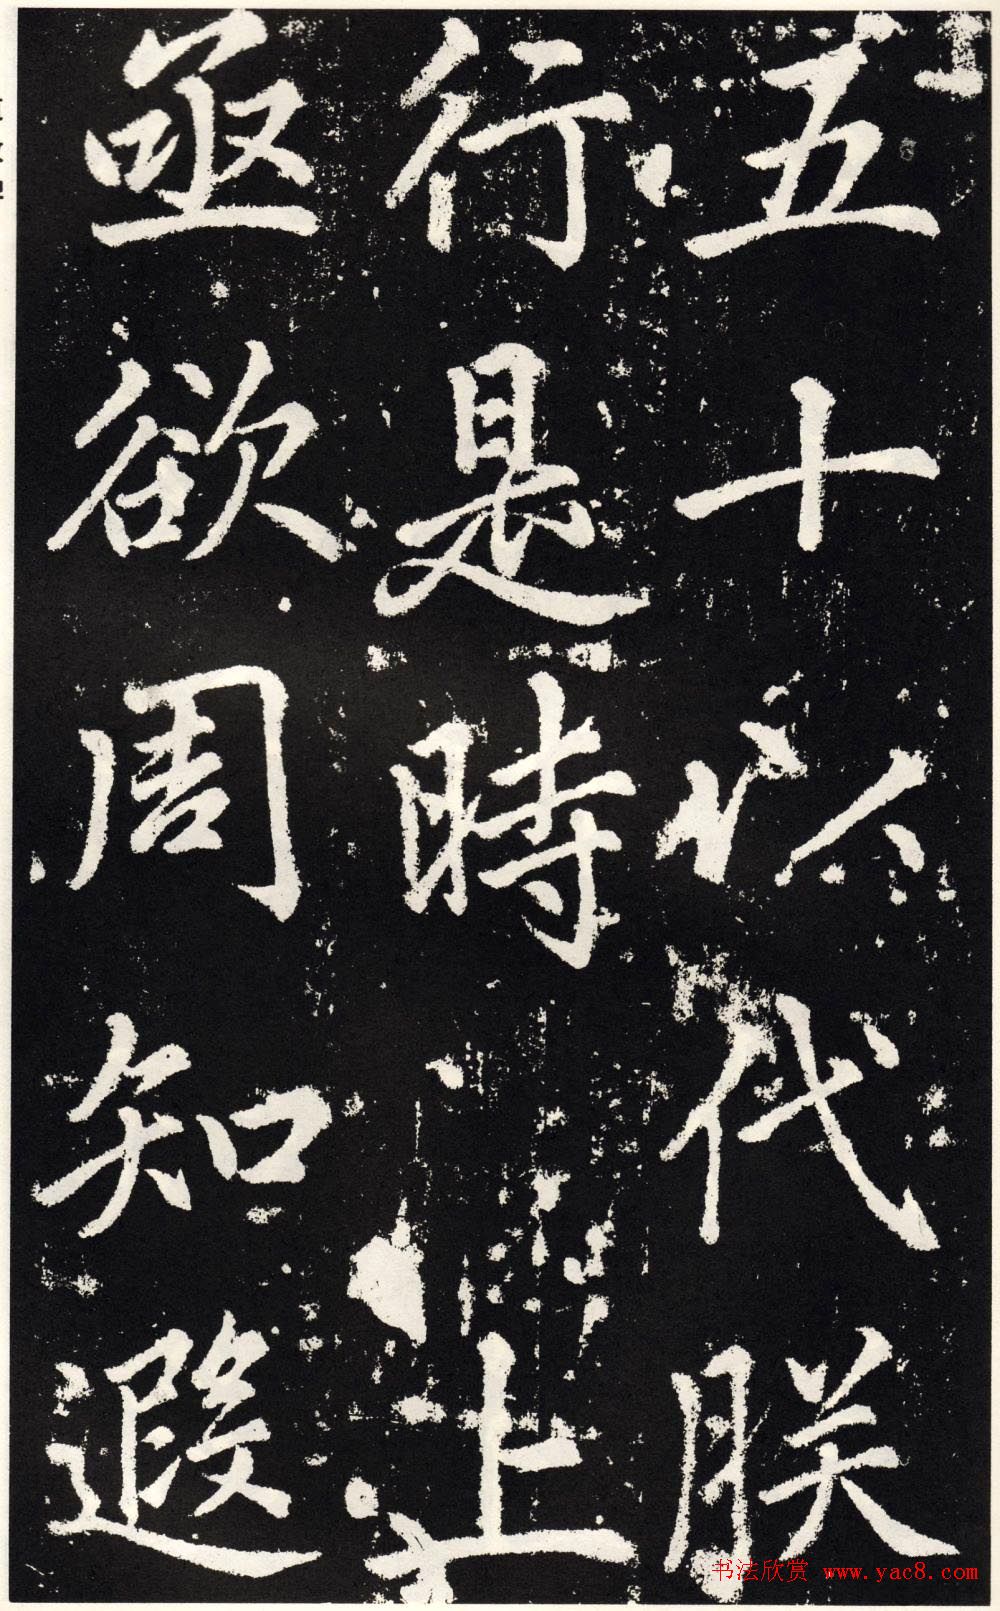 五十以代朕
行是時上
亟欲周知遐
书法欣赏 www.yac8.com